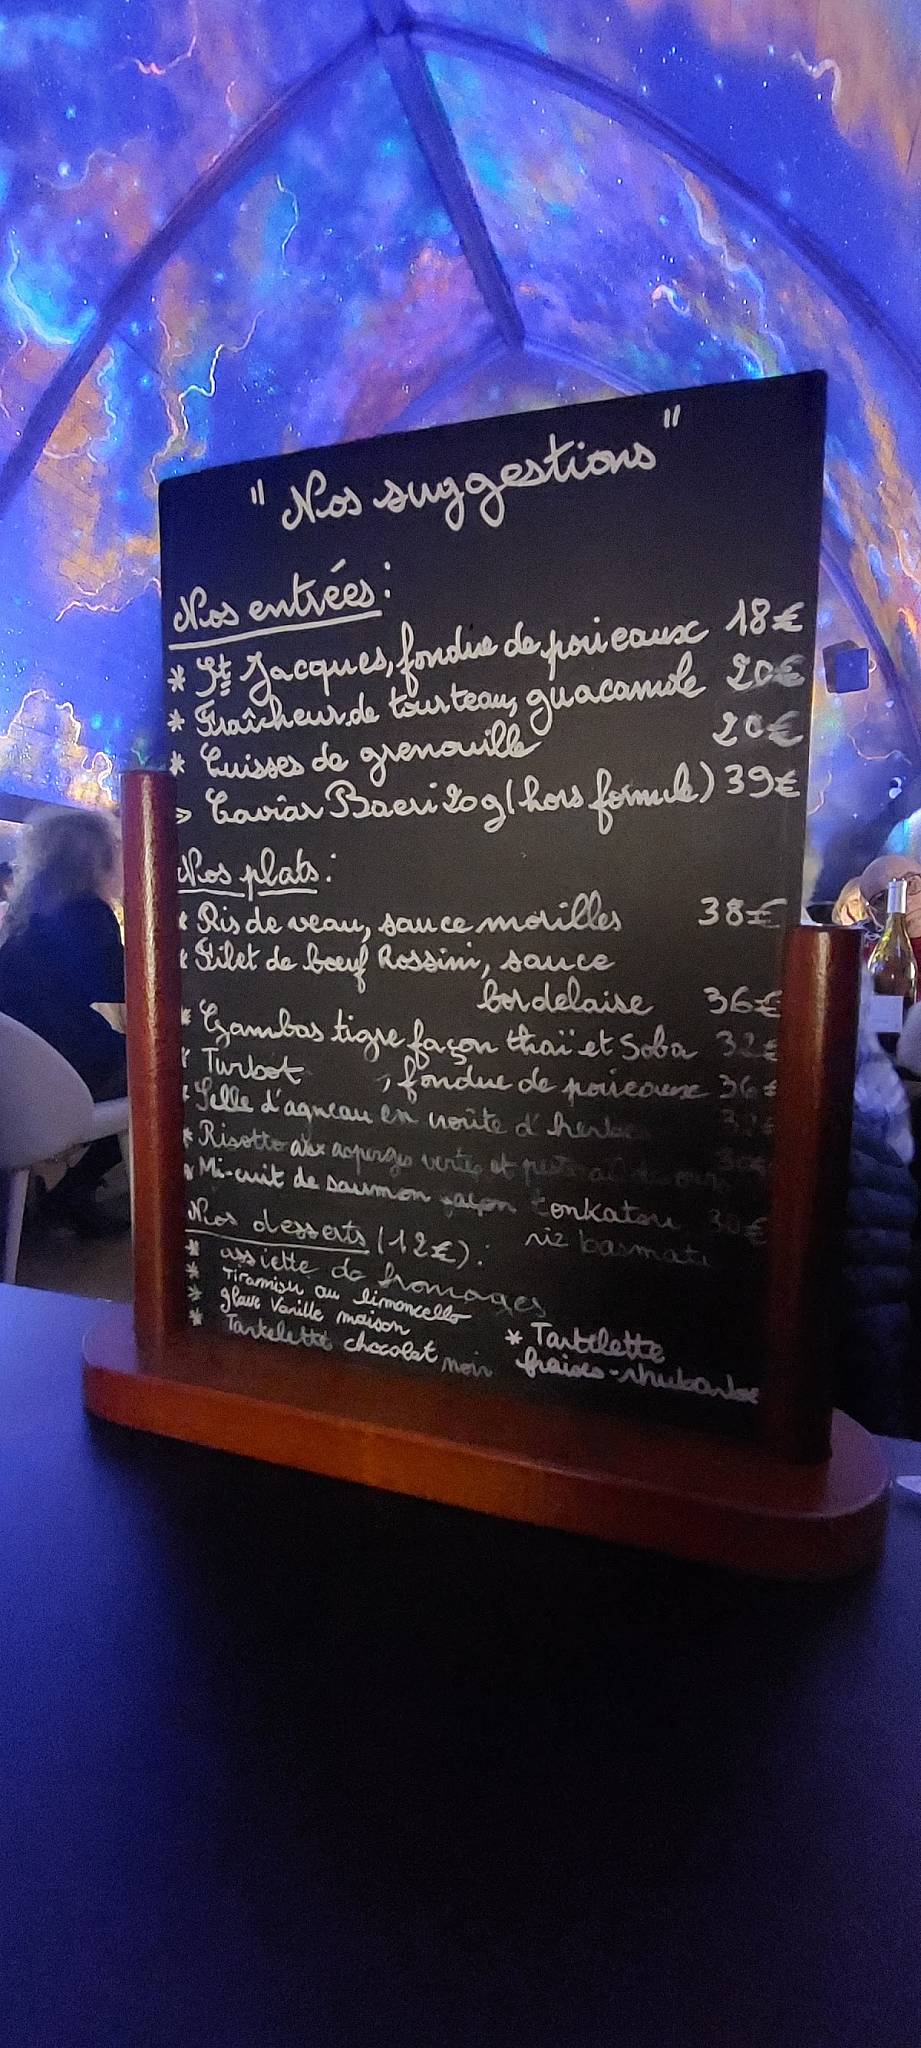 " Nos suggestions "
Nos entrées :
* St Jacques, fondue de poireaux 18€
* Fraîcheur de tourteau, guacamole 20€
* Cuisses de grenouille 20€
> Caviar Baeri 20g (hors formule) 39€
Nos plats :
* Ris de veau, sauce morilles 38€
* Filet de boeuf Rossini, sauce
bordelaise 36€
* Gambas tigre façon thaï et Soba 32€
* Turbot , fondue de poireaux 36€
* Selle d'agneau en croûte d'herbes 32€
* Risotto aux asperges vertes et 30€
* Mi-cuit de saumon façon tonkatsu 30€
riz basmati
Nos desserts (12€) :
* assiette de fromages
* Tiramisu au limoncello
* glace Vanille maison
* Tartelette chocolat noir
* Tartelette
fraises-rhubarbe